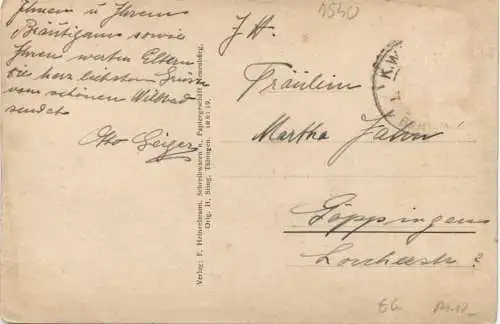 Ihnen u Ihrem
Bräutigam sowie
Ihren werten Eltern
die herzlichsten Grüsse
vom schönen Wildbad
sendet
Otto Geiger
Verlag: F. Heinzelmann, Schreibwaren u. Papiergeschäft Neuenbürg.
Orig. H. Sting, Tübingen.
1540
Fräulein
Martha Jahn
Göppingen
Lorcherstr ?